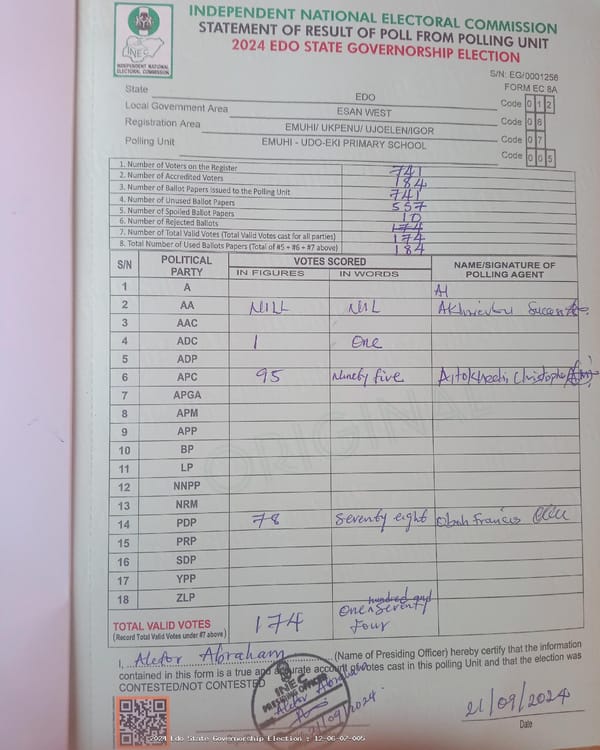 INDEPENDENT NATIONAL ELECTORAL COMMISSION
STATEMENT OF RESULT OF POLL FROM POLLING UNIT
2024 EDO STATE GOVERNORSHIP ELECTION
INEC
INDEPENDENT NATIONAL
ELECTORAL COMMISSION
S/N: EG/0001256
FORM EC 8A
State EDO Code 0 1 2
Local Government Area ESAN WEST Code 0 6
Registration Area EMUHI/ UKPENU/ UJOELEN/IGOR Code 0 7
Polling Unit EMUHI - UDO-EKI PRIMARY SCHOOL Code 0 0 5
1. Number of Voters on the Register 741
2. Number of Accredited Voters 184
3. Number of Ballot Papers Issued to the Polling Unit 741
4. Number of Unused Ballot Papers 557
5. Number of Spoiled Ballot Papers
6. Number of Rejected Ballots 10
7. Number of Total Valid Votes (Total Valid Votes cast for all parties) 174
8. Total Number of Used Ballots Papers (Total of #5 + #6 + #7 above) 184
S/N POLITICAL PARTY VOTES SCORED NAME/SIGNATURE OF POLLING AGENT
IN FIGURES IN WORDS
1 A
2 AA NILL NIL
3 AAC
4 ADC 1 One
5 ADP
6 APC 95 Ninety five Christopher
7 APGA
8 APM
9 APP
10 BP
11 LP
12 NNPP
13 NRM
14 PDP 78 Seventy eight Obah Francis
15 PRP
16 SDP
17 YPP
18 ZLP
ORIGINAL
TOTAL VALID VOTES 174 One hundred and Seventy four
(Record Total Valid Votes under #7 above)
I, Alefor Abraham (Name of Presiding Officer) hereby certify that the information
contained in this form is a true and accurate account of votes cast in this polling Unit and that the election was
CONTESTED/NOT CONTESTED
INEC
PRESIDING OFFICER
Alefor Abraham
21/09/2024
21/09/2024
Date
2024 Edo State Governorship Election : 12-06-07-005